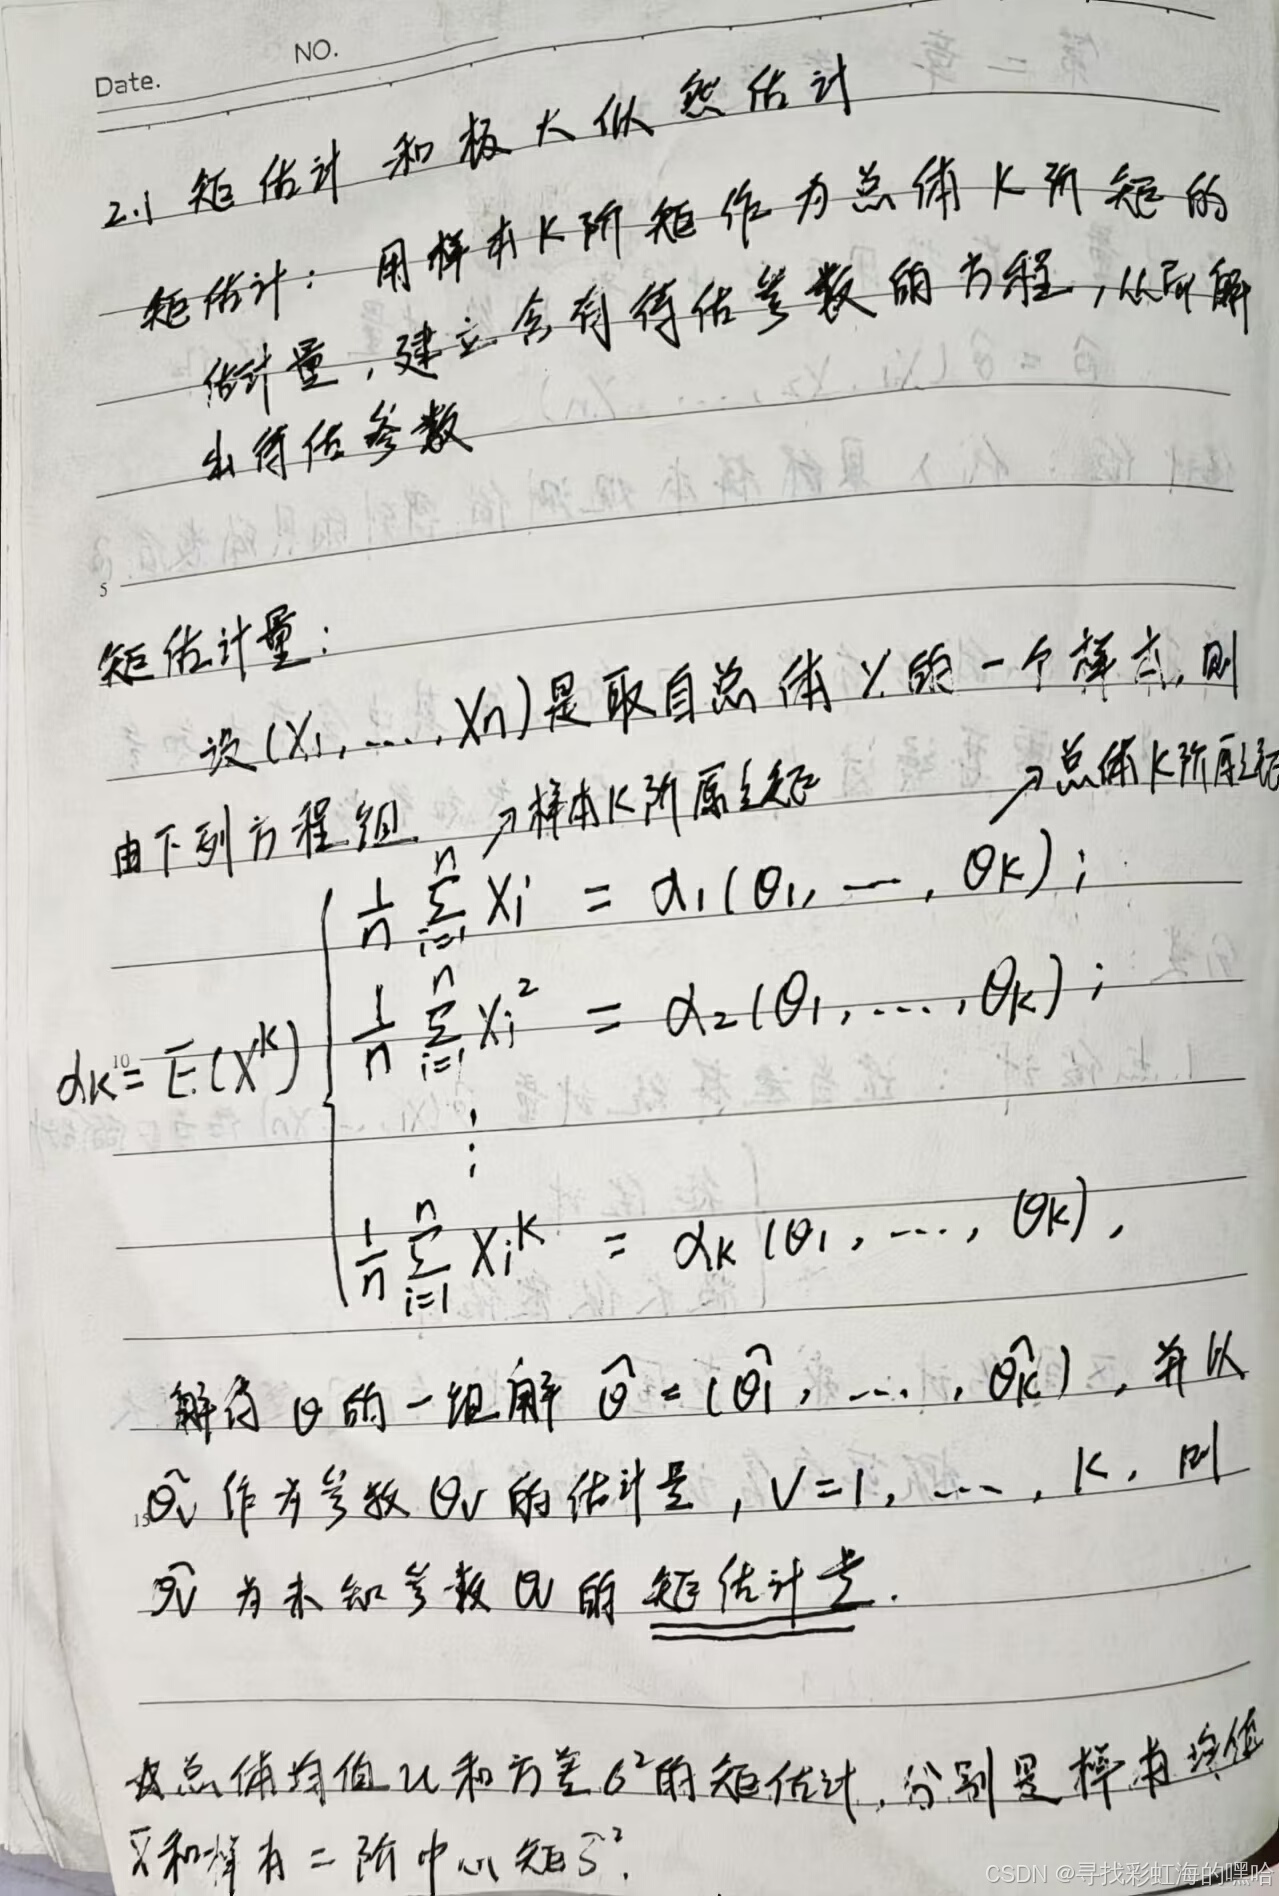 NO.
Date.
2.1 矩估计和极大似然估计
矩估计：用样本K阶矩作为总体K阶矩的
估计量，建立含有待估参数的方程，从而解
出待估参数
5
矩估计量：
设(X1, ..., Xn)是取自总体X的一个样本，则
由下列方程组 ↗样本K阶原点矩 ↗总体K阶原点矩
1/n Σ_{i=1}^{n} Xi = α1(θ1, ..., θK);
1/n Σ_{i=1}^{n} Xi² = α2(θ1, ..., θK);
10
αK = E(X^K)
⋮
1/n Σ_{i=1}^{n} Xi^K = αK(θ1, ..., θK),
解得θ的一组解 θ̂ = (θ̂1, ..., θ̂K)，并以
15
θ̂v作为参数θv的估计量，v=1, ..., K，则
θ̂v为未知参数θv的矩估计量.
☆总体均值u和方差σ²的矩估计，分别是样本均值
X̄和样本二阶中心矩S̃².
CSDN @寻找彩虹海的嘿哈